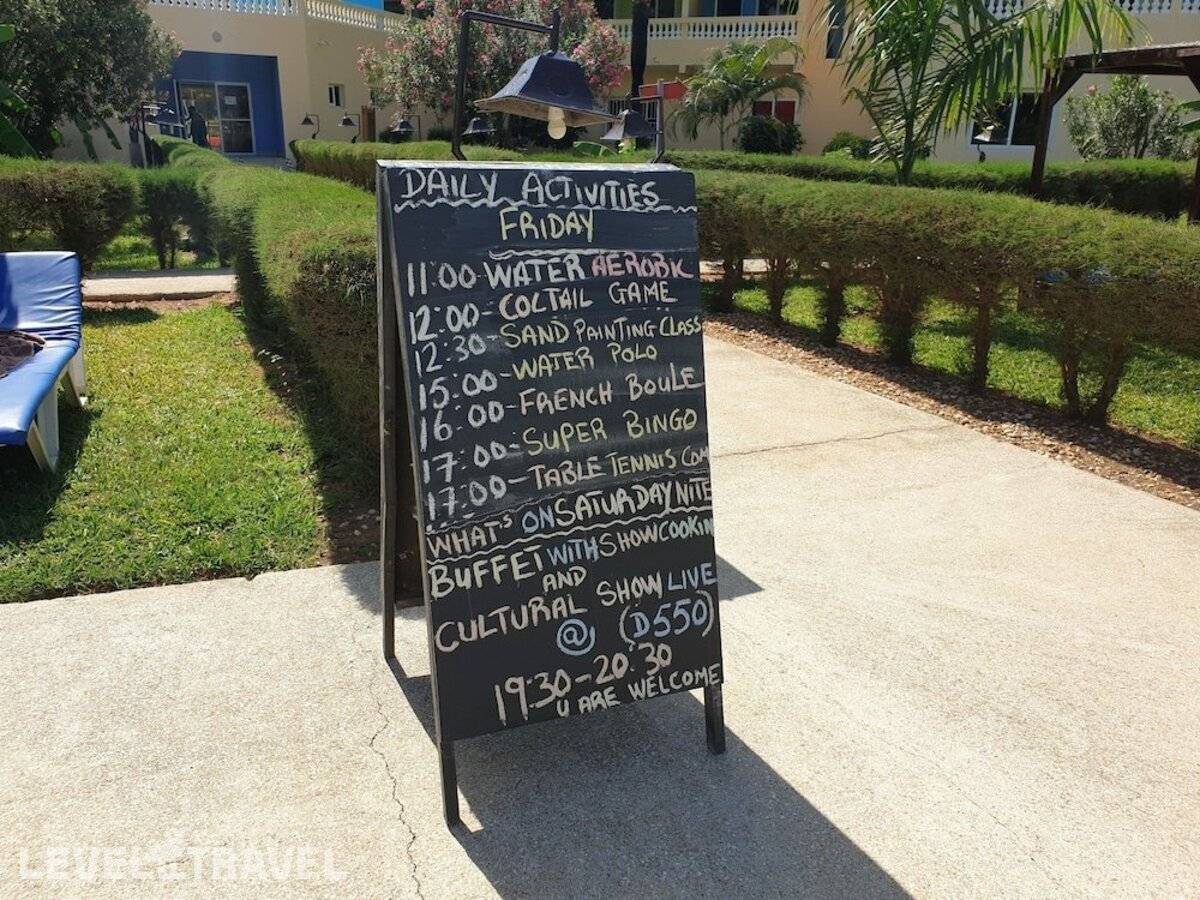 DAILY ACTIVITIES
FRIDAY
11:00-WATER AEROBIC
12:00-COLTAIL GAME
12:30-SAND PAINTING CLASS
15:00-WATER POLO
16:00-FRENCH BOULE
17:00-SUPER BINGO
17:00-TABLE TENNIS COM
WHAT'S ON SATURDAY NITE
BUFFET WITH SHOWCOOKIN
AND
CULTURAL SHOW LIVE
@ (D550)
19:30-20:30
U ARE WELCOME
LEVEL.TRAVEL